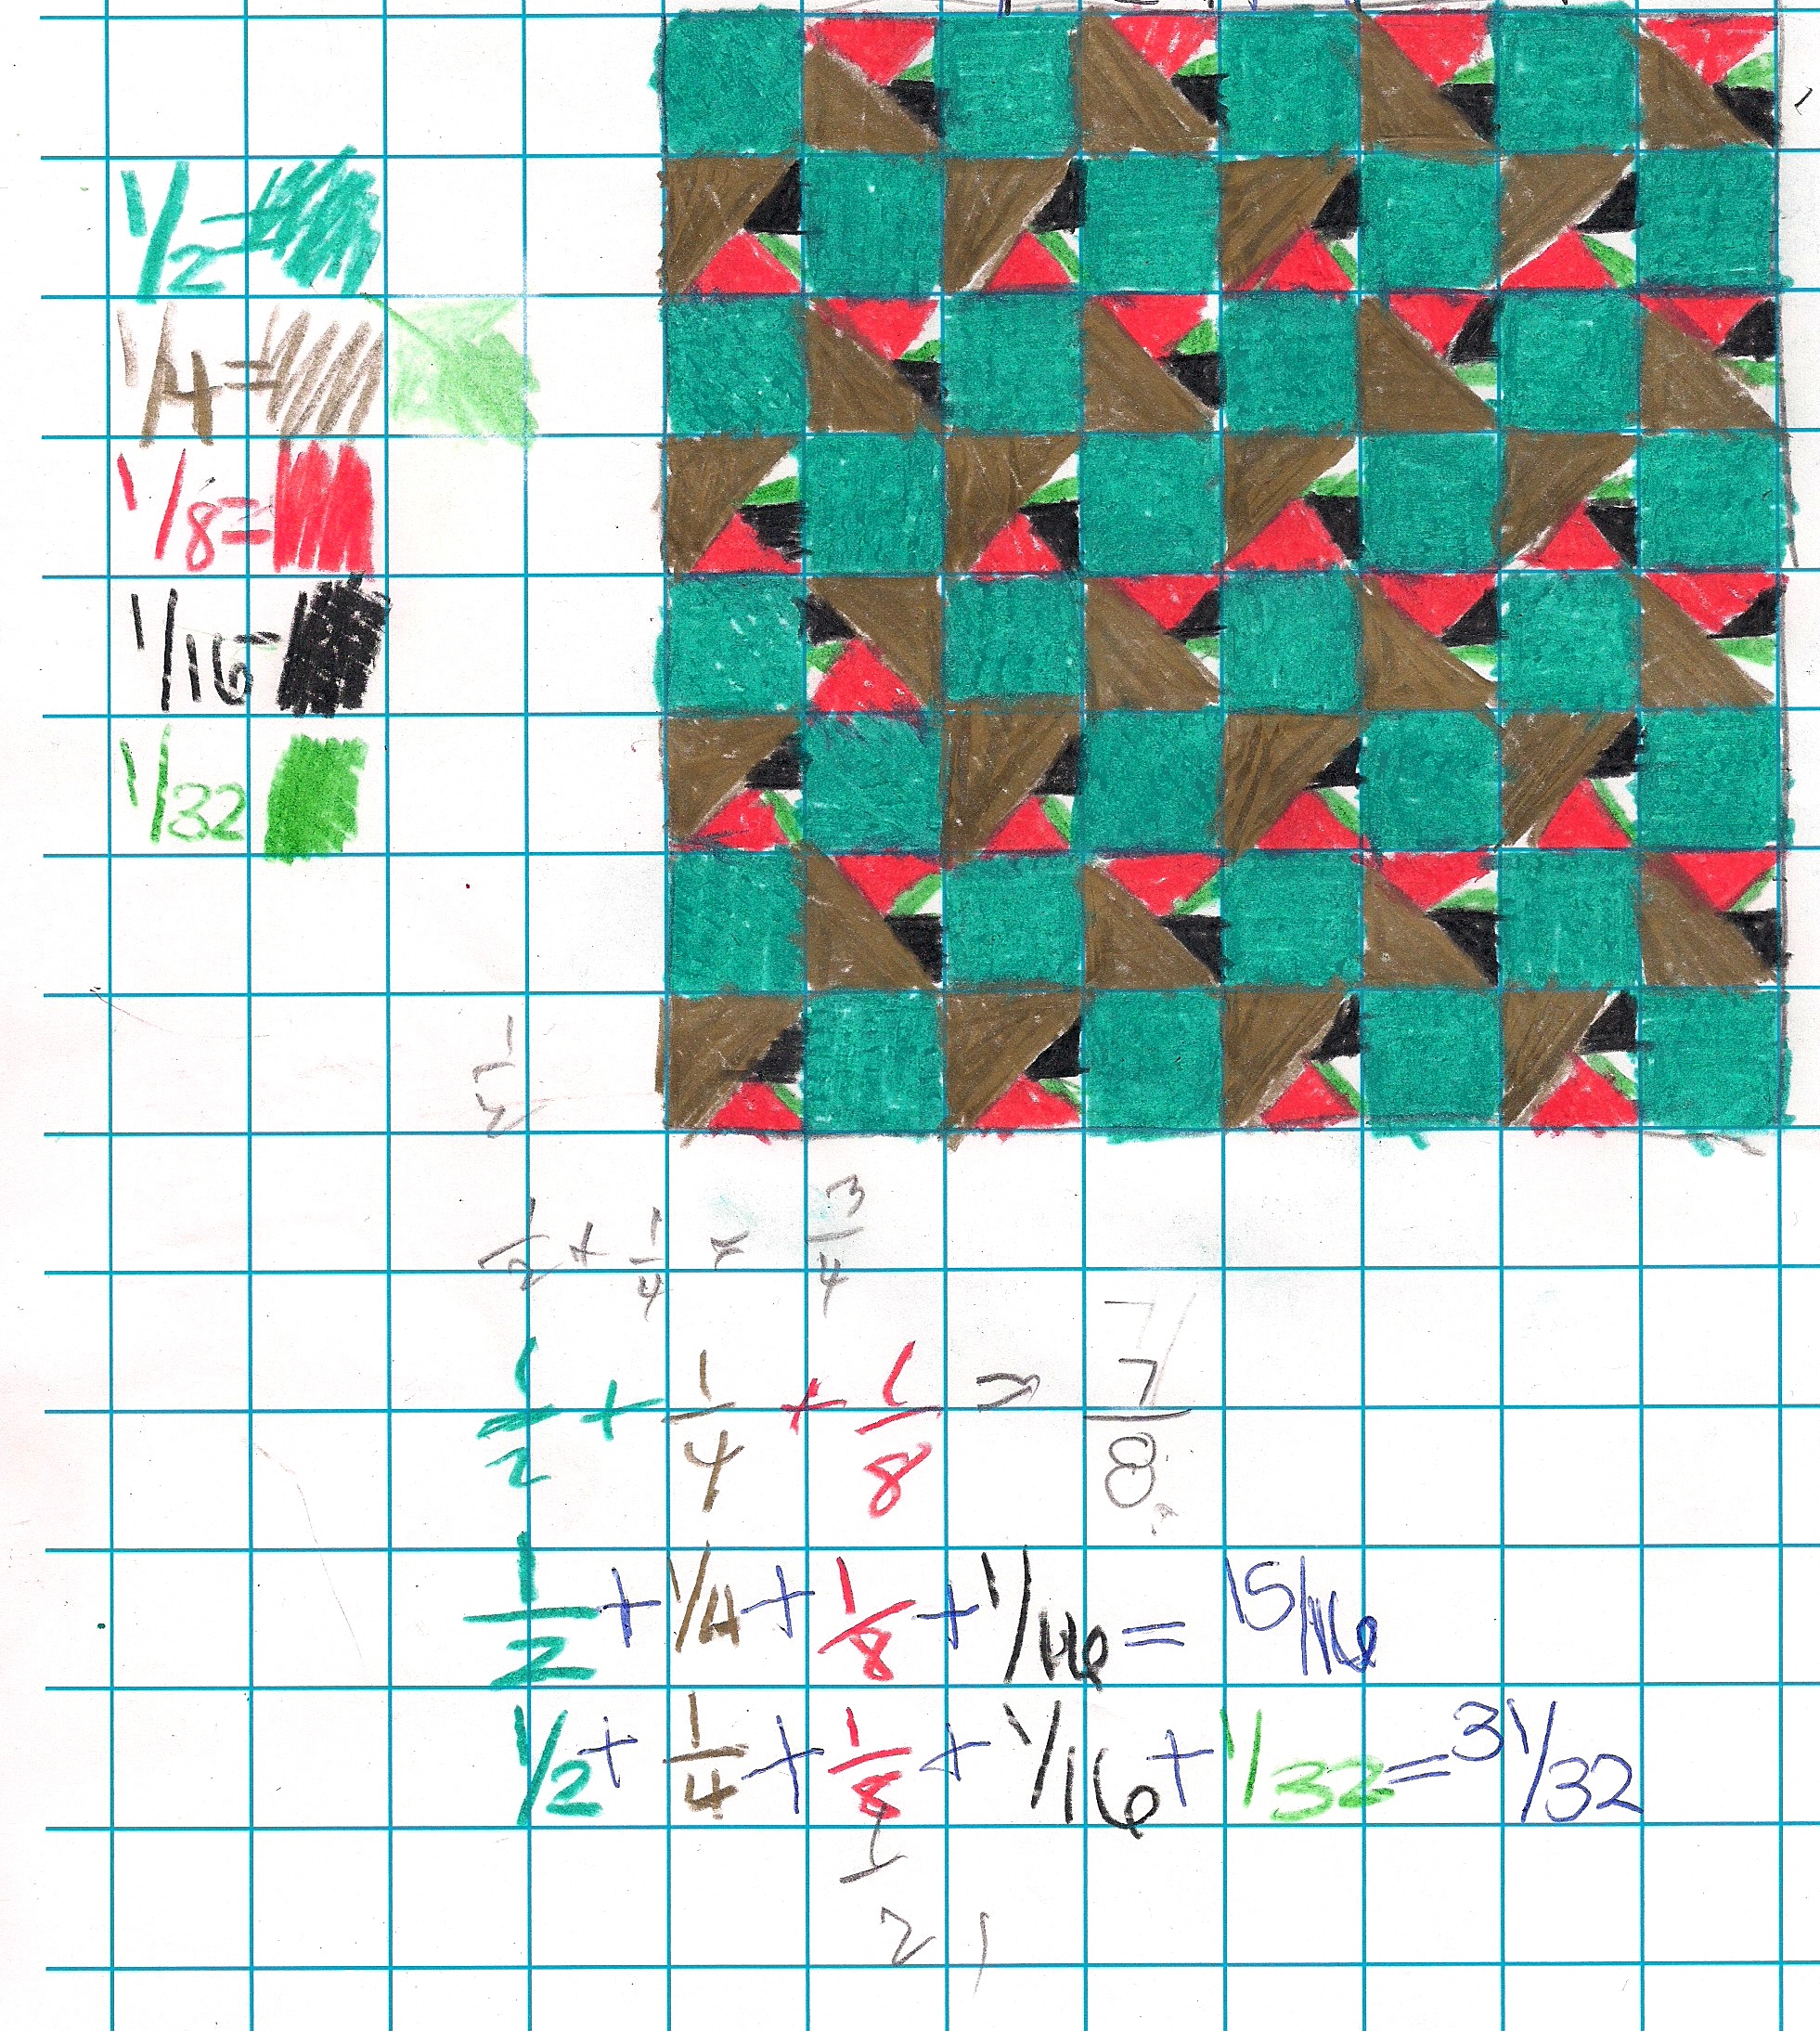 1/2=
1/4=
1/8=
1/16-
1/32
1/2
1/2 + 1/4 = 3/4
1/2 + 1/4 + 1/8 = 7/8
1/2 + 1/4 + 1/8 + 1/16 = 15/16
1/2 + 1/4 + 1/8 + 1/16 + 1/32 = 31/32